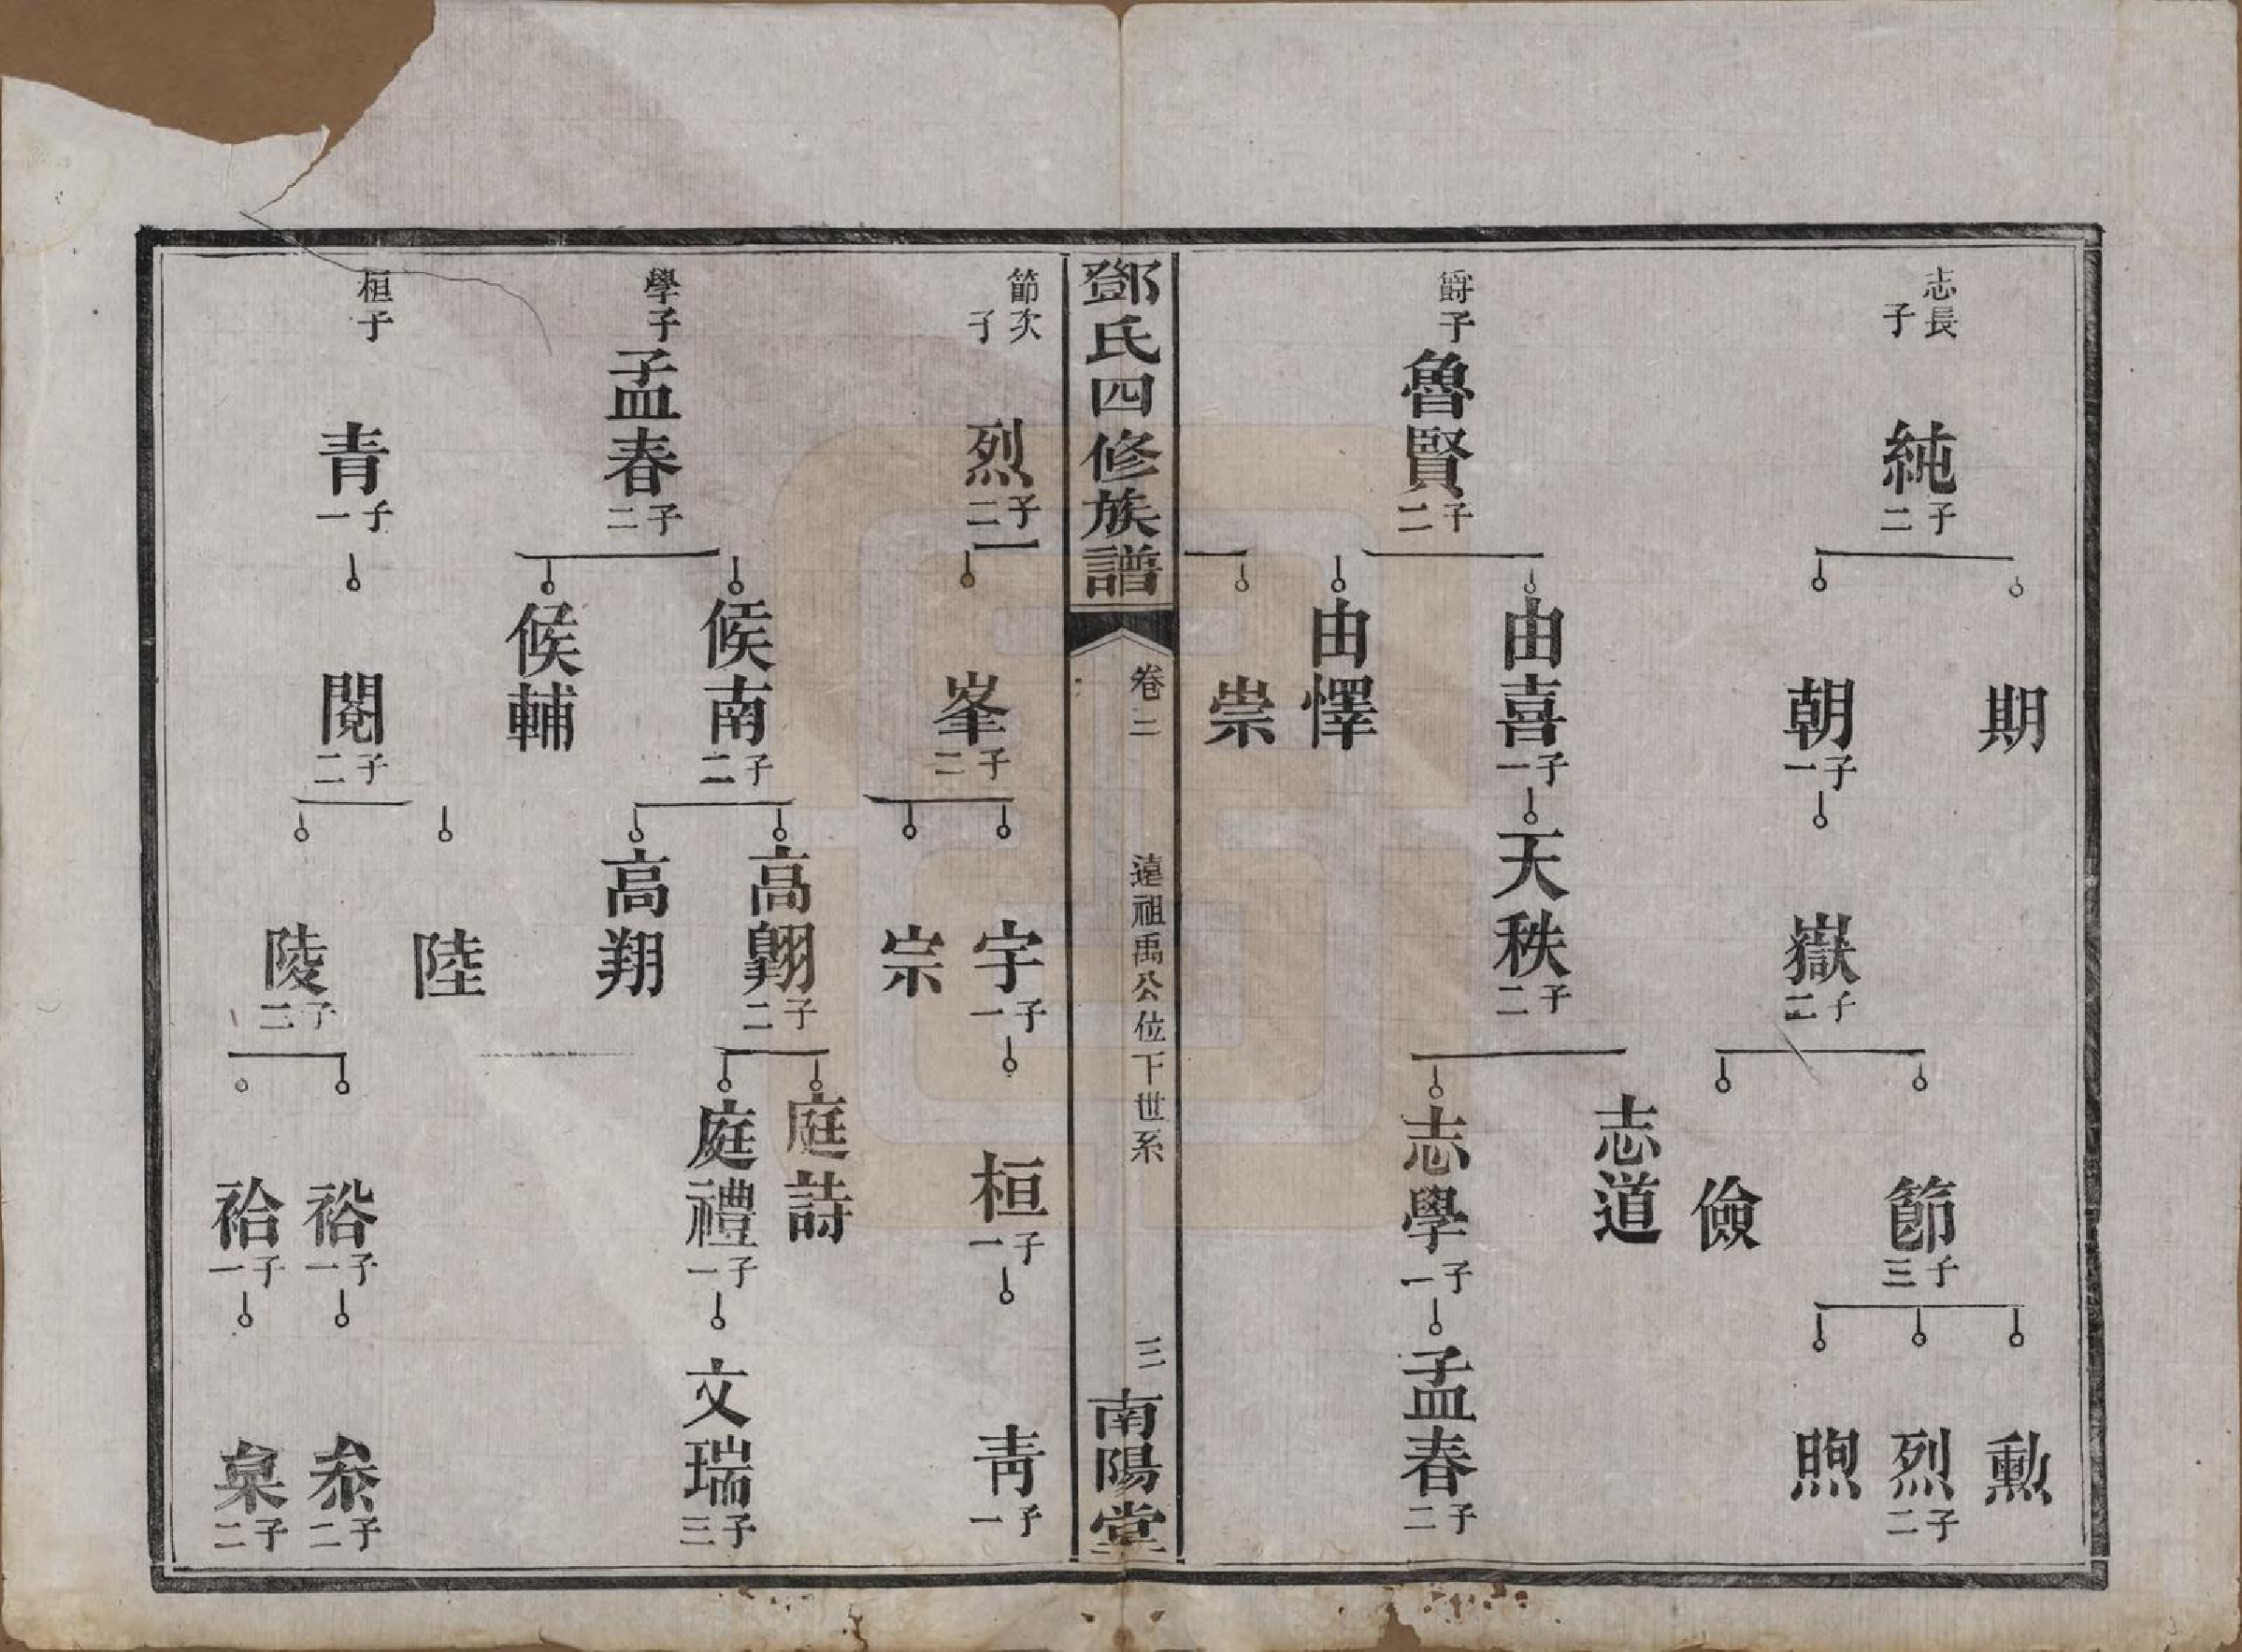 志長子
純 子二
期
朝 子一
嶽 子二
節 子三
儉
勳
烈 子二
煦
爵子
魯賢 子二
由喜 子一
由懌
天秩 子二
志道
志學 子一
孟春 子二
崇
鄧氏四修族譜
卷二
遠祖禹公位下世系
三
南陽堂
節次子
烈 子二
峯 子二
宇 子一
宗
桓 子一
青 子一
學子
孟春 子二
候南 子二
候輔
高翺 子二
高翔
庭詩
庭禮 子一
文瑞 子三
桓子
青 子一
閱 子二
陸
陵 子二
裕 子一
祫 子一
子二
子二